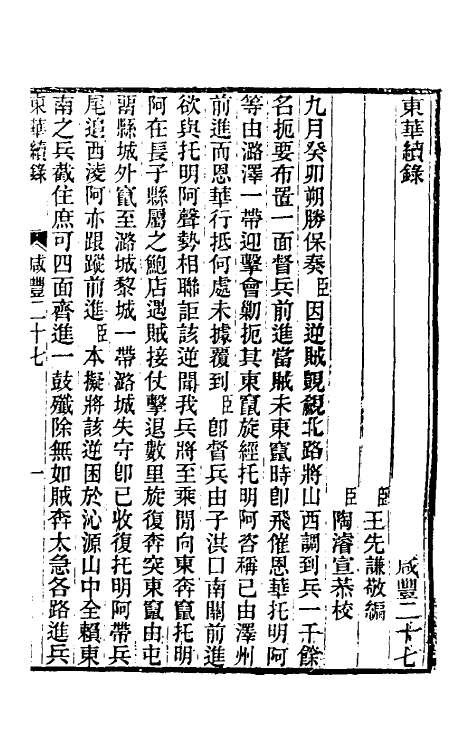 東華續錄　咸豐二十七
臣王先謙敬編
臣陶濬宣恭校
九月癸卯朔勝保奏臣因逆賊覬覦北路將山西調到兵一千餘
名扼要布置一面督兵前進當賊未東竄時卽飛催恩華托明阿
等由潞澤一帶迎擊會勦扼其東竄旋經托明阿咨稱已由澤州
前進而恩華行抵何處未據覆到臣卽督兵由子洪口南關前進
欲與托明阿聲勢相聯詎該逆聞我兵將至乘閒向東奔竄托明
阿在長子縣屬之鮑店遇賊接仗擊退數里旋復奔突東竄由屯
留縣城外竄至潞城黎城一帶潞城失守卽已收復托明阿帶兵
尾追西淩阿亦跟蹤前進臣本擬將該逆困於沁源山中全賴東
南之兵截住庶可四面齊進一鼓殲除無如賊奔太急各路進兵
東華續錄　咸豐二十七　一